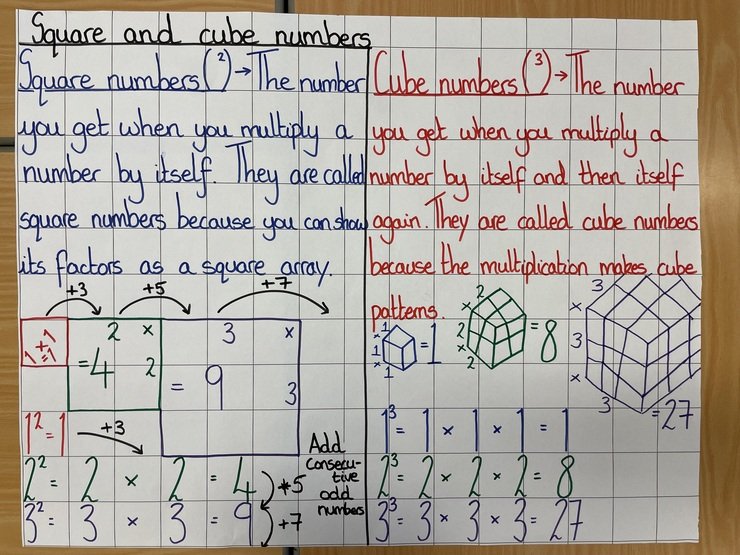 Square and cube numbers
Square numbers (²) → The number
you get when you multiply a
number by itself. They are called
square numbers because you can show
its factors as a square array.
+3 +5 +7
1 × 1 = 1
2 × 2 = 4
3 × 3 = 9
1² = 1
+3
2² = 2 × 2 = 4
+5
3² = 3 × 3 = 9
+7
Add
consecu-
tive
odd
numbers
Cube numbers (³) → The number
you get when you multiply a
number by itself and then itself
again. They are called cube numbers
because the multiplication makes cube
patterns.
1 × 1 × 1 = 1
2 × 2 × 2 = 8
3 × 3 × 3 = 27
1³ = 1 × 1 × 1 = 1
2³ = 2 × 2 × 2 = 8
3³ = 3 × 3 × 3 = 27